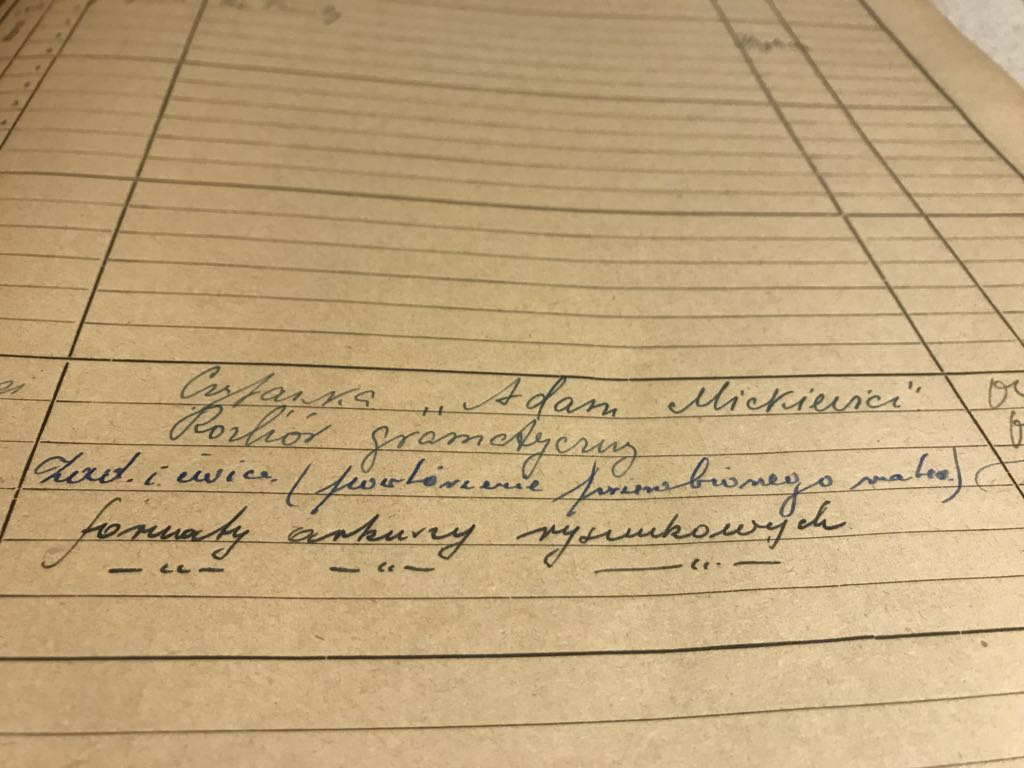 Czytanka „Adam Mickiewicz"
Rozbiór gramatyczny
Zad. i ćwicz. (powtórzenie przerobionego mater.)
formaty arkuszy rysunkowych
— „ — — „ — — „ —